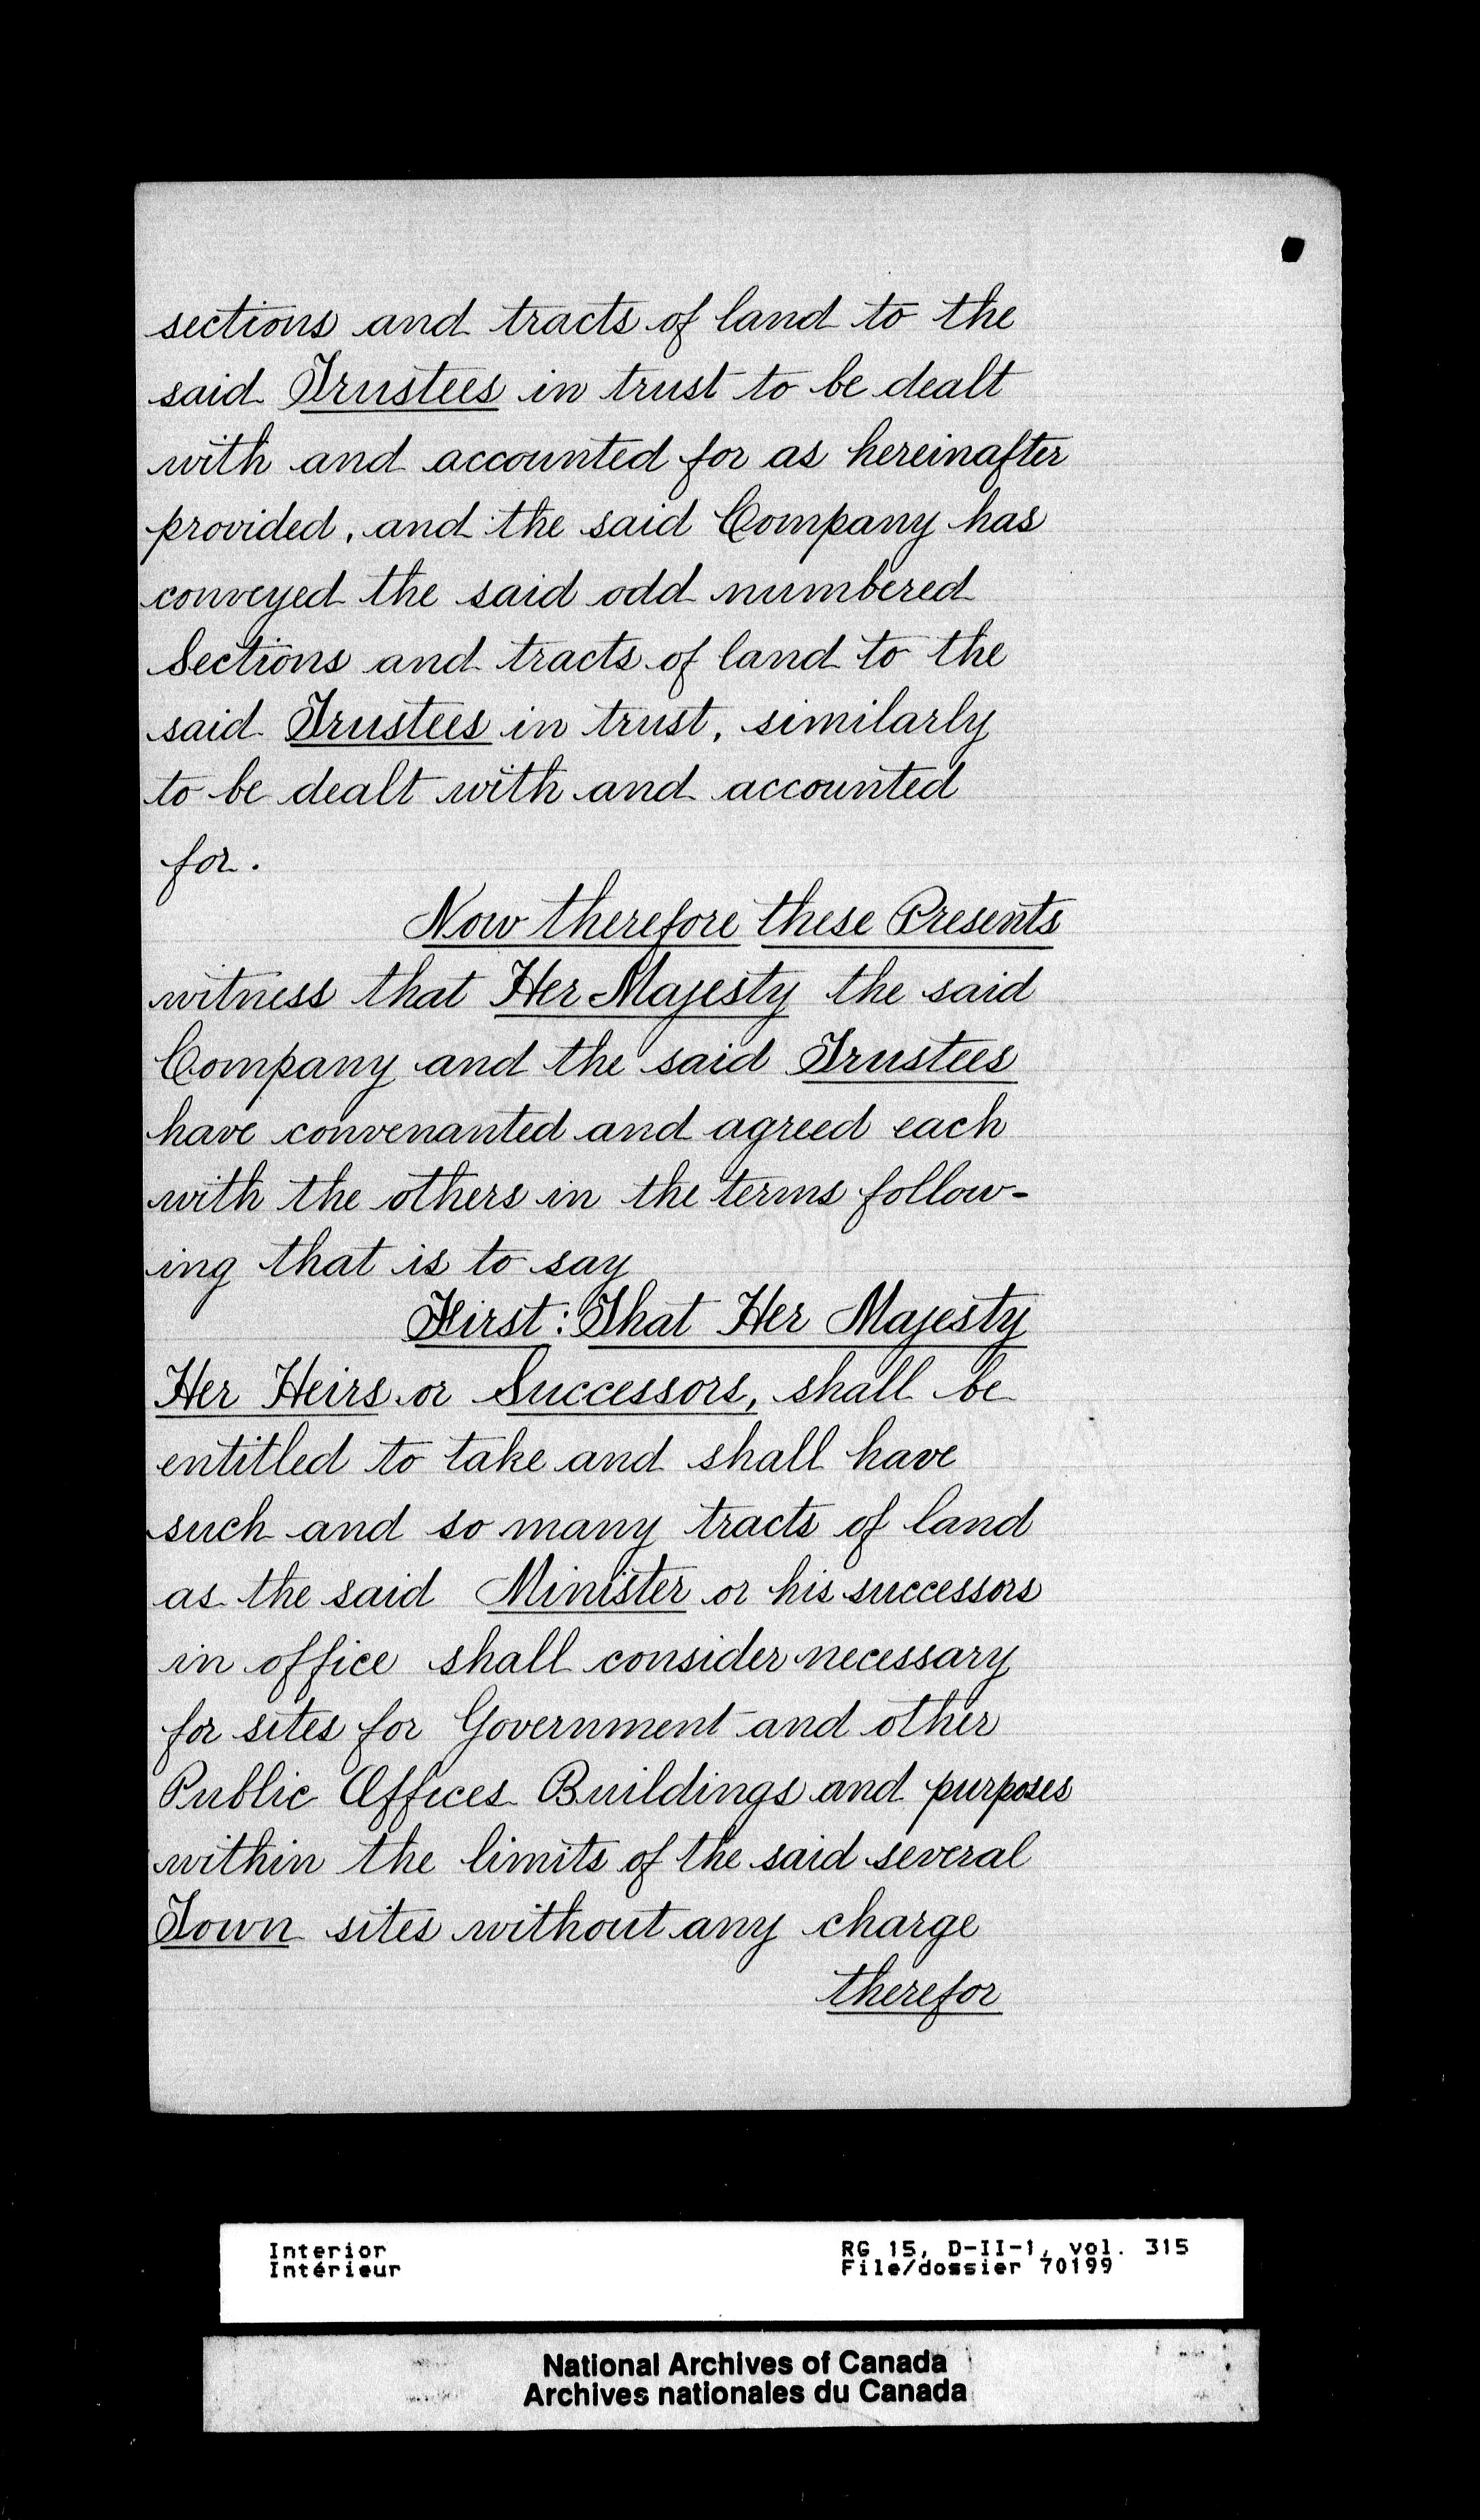 sections and tracts of land to the
said Trustees in trust to be dealt
with and accounted for as hereinafter
provided, and the said Company has
conveyed the said odd numbered
Sections and tracts of land to the
said Trustees in trust, similarly
to be dealt with and accounted
for.
Now therefore these Presents
witness that Her Majesty the said
Company and the said Trustees
have convenanted and agreed each
with the others in the terms follow-
ing that is to say
First: That Her Majesty
Her Heirs or Successors, shall be
entitled to take and shall have
such and so many tracts of land
as the said Minister or his successors
in office shall consider necessary
for sites for Government and other
Public Offices Buildings and purposes
within the limits of the said several
Town sites without any charge
therefor
Interior RG 15, D-II-1, vol. 315
Intérieur File/dossier 70199
National Archives of Canada
Archives nationales du Canada